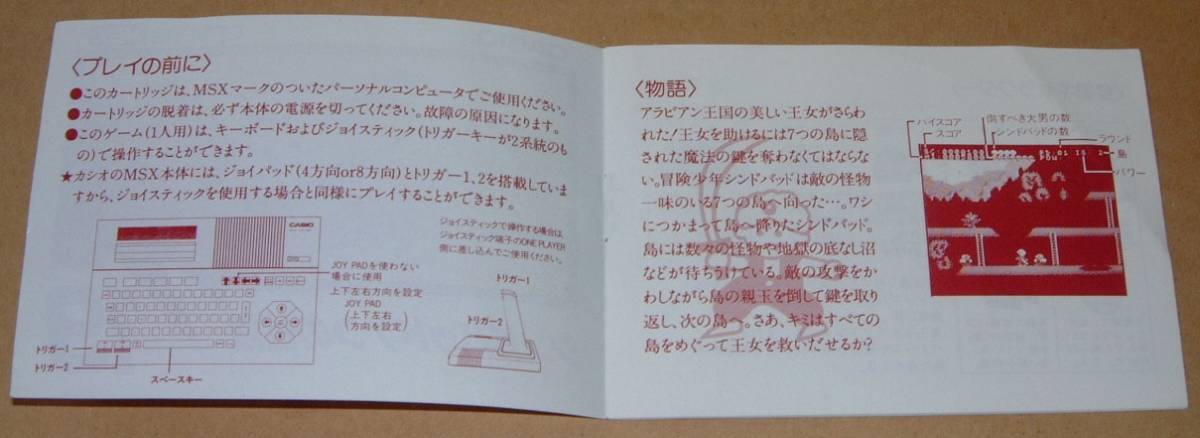 〈プレイの前に〉
●このカートリッジは、MSXマークのついたパーソナルコンピュータでご使用ください。
●カートリッジの脱着は、必ず本体の電源を切ってください。故障の原因になります。
●このゲーム(1人用)は、キーボードおよびジョイスティック(トリガーキーが2系統のも
の)で操作することができます。
★カシオのMSX本体には、ジョイパッド(4方向or8方向)とトリガー1、2を搭載していま
すから、ジョイスティックを使用する場合と同様にプレイすることができます。
CASIO
ジョイスティックで操作する場合は、
ジョイスティック端子のONE PLAYER
側に差し込んでご使用ください。
JOY PADを使わない
場合に使用
上下左右方向を設定
JOY PAD
(上下左右
方向を設定)
トリガー1
トリガー2
スペースキー
トリガー1
トリガー2
〈物語〉
アラビアン王国の美しい王女がさらわ
れた!王女を助けるには7つの島に隠
された魔法の鍵を奪わなくてはならな
い。冒険少年シンドバッドは敵の怪物
一味のいる7つの島へ向った…。ワシ
につかまって島へ降りたシンドバッド。
島には数々の怪物や地獄の底なし沼
などが待ちうけている。敵の攻撃をか
わしながら島の親玉を倒して鍵を取り
返し、次の島へ。さあ、キミはすべての
島をめぐって王女を救いだせるか?
ハイスコア
スコア
倒すべき大男の数
シンドバッドの数
ラウンド
島
パワー